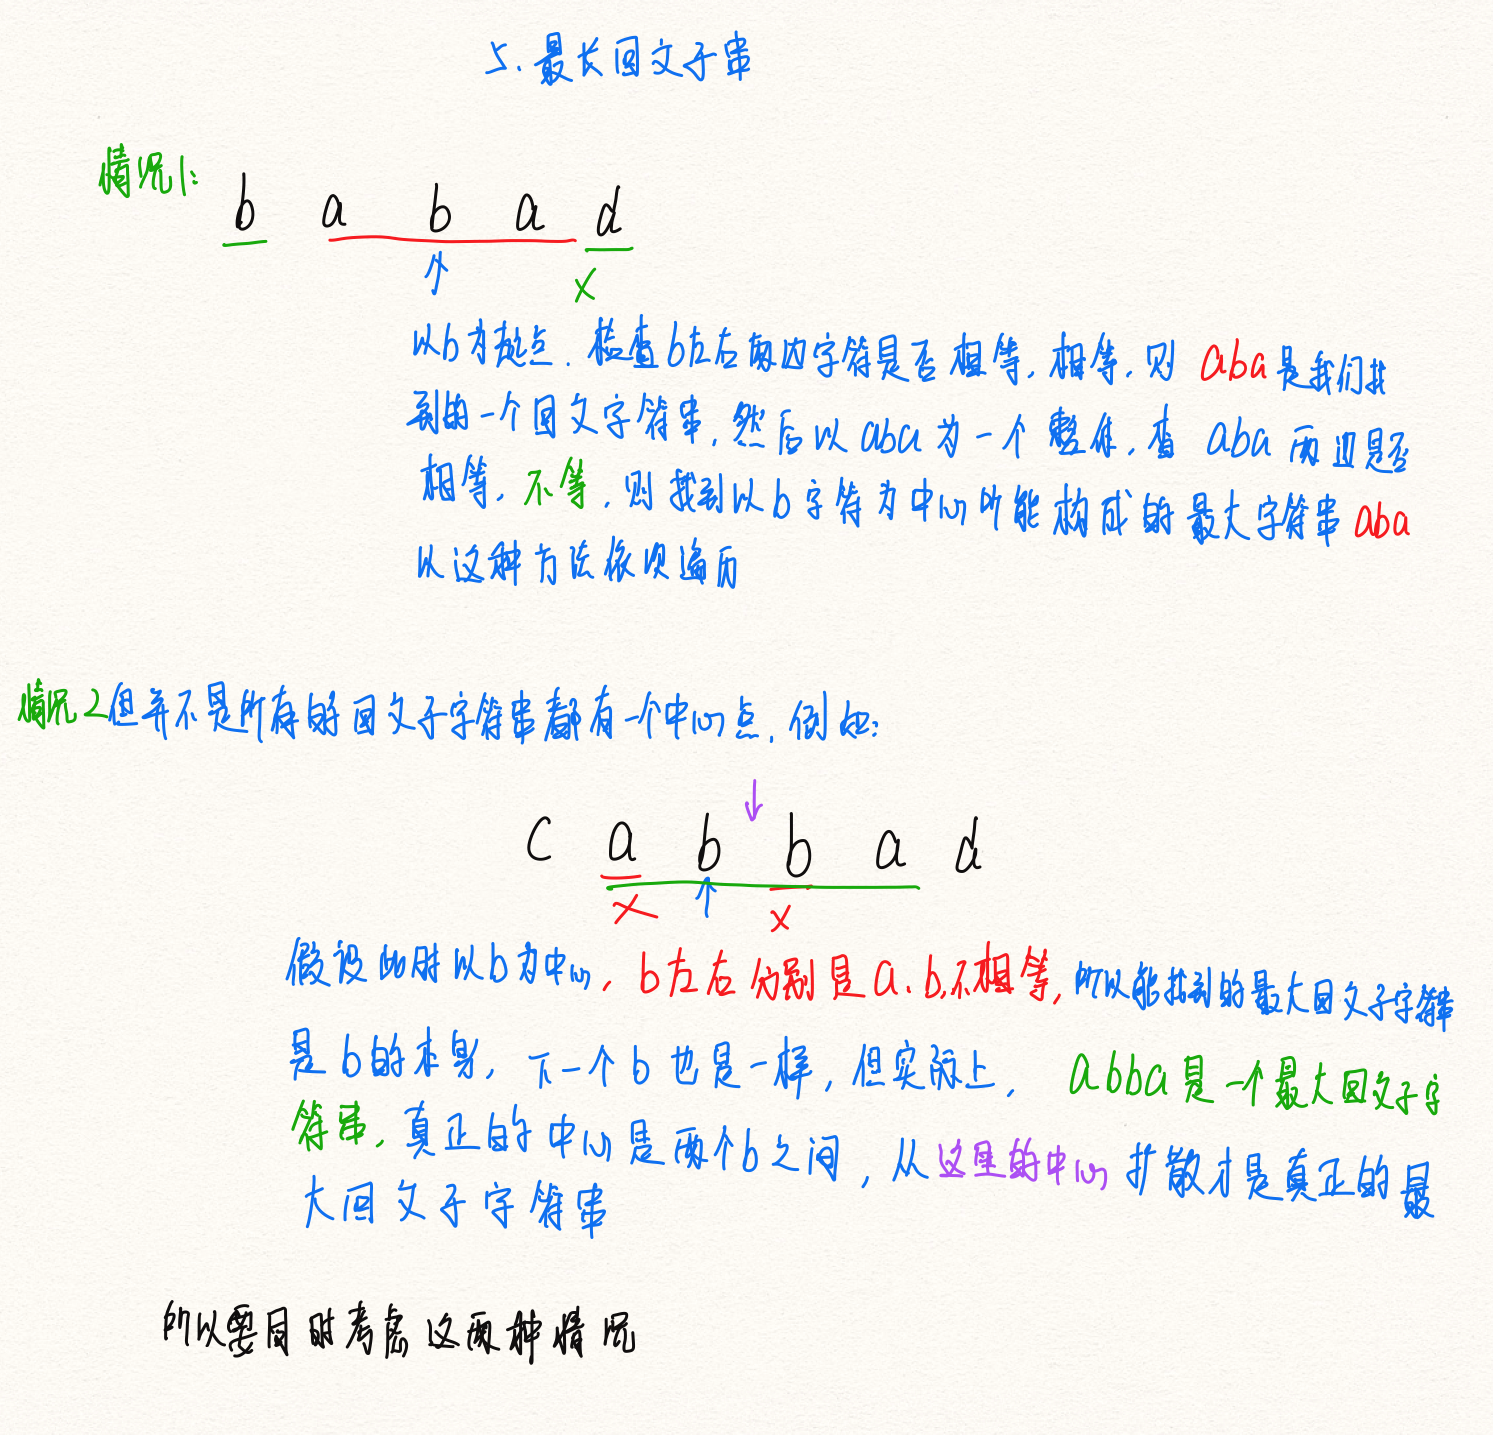 5. 最长回文子串
情况1:
b a b a d
以b为起点. 检查b左右两边字符是否相等, 相等, 则 aba是我们找
到的一个回文字符串, 然后以 aba 为一个 整体, 查 aba 两边是否
相等, 不等, 则找到以b字符为中心所能构成的最大字符串 aba
以这种方法依次遍历
情况2 但并不是所有的回文子字符串都有一个中心点, 例如:
c a b b a d
假设此时以b为中心, b左右分别是a.b,不相等, 所以能找到的最大回文子字符串
是b的本身, 下一个b也是一样, 但实际上, abba是一个最大回文子字
符串, 真正的中心是两个b之间, 从这里的中心扩散才是真正的最
大回文子字符串
所以要同时考虑这两种情况